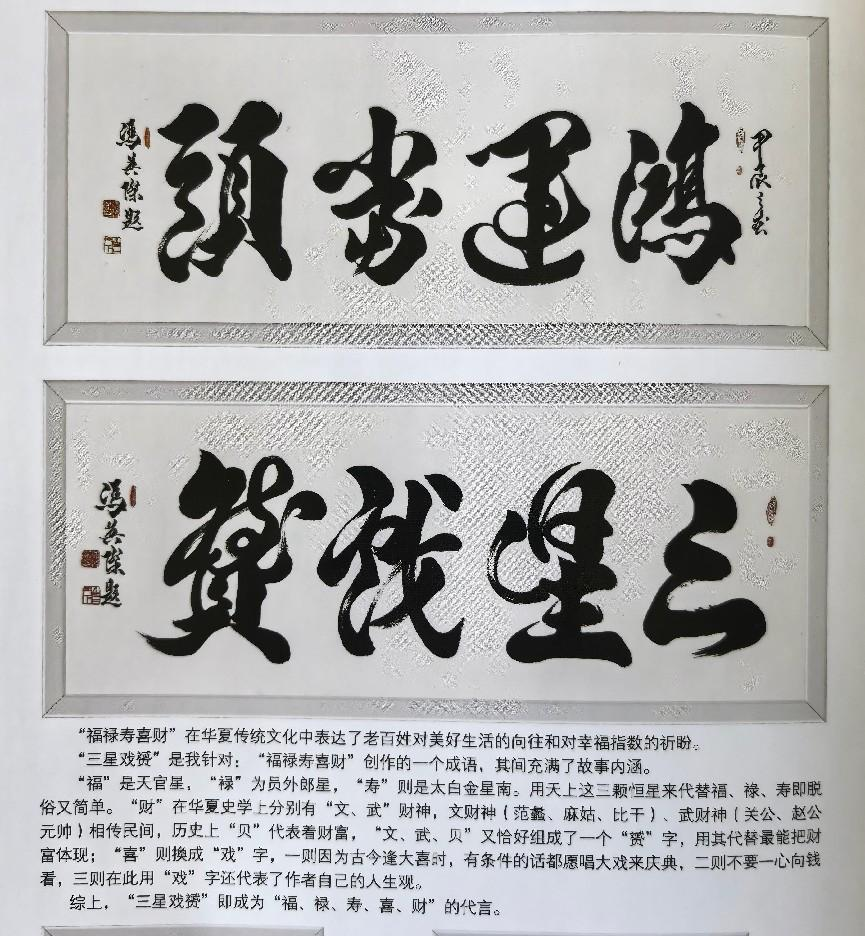 甲辰之春
鴻運當頭
馮英傑題
三星戲贇
馮英傑題
“福禄寿喜财”在华夏传统文化中表达了老百姓对美好生活的向往和对幸福指数的祈盼。
“三星戏赟”是我针对：“福禄寿喜财”创作的一个成语，其间充满了故事内涵。
“福”是天官星，“禄”为员外郎星，“寿”则是太白金星南。用天上这三颗恒星来代替福、禄、寿即脱
俗又简单。“财”在华夏史学上分别有“文、武”财神，文财神（范蠡、麻姑、比干）、武财神（关公、赵公
元帅）相传民间，历史上“贝”代表着财富，“文、武、贝”又恰好组成了一个“赟”字，用其代替最能把财
富体现；“喜”则换成“戏”字，一则因为古今逢大喜时，有条件的话都愿唱大戏来庆典，二则不要一心向钱
看，三则在此用“戏”字还代表了作者自己的人生观。
综上，“三星戏赟”即成为“福、禄、寿、喜、财”的代言。